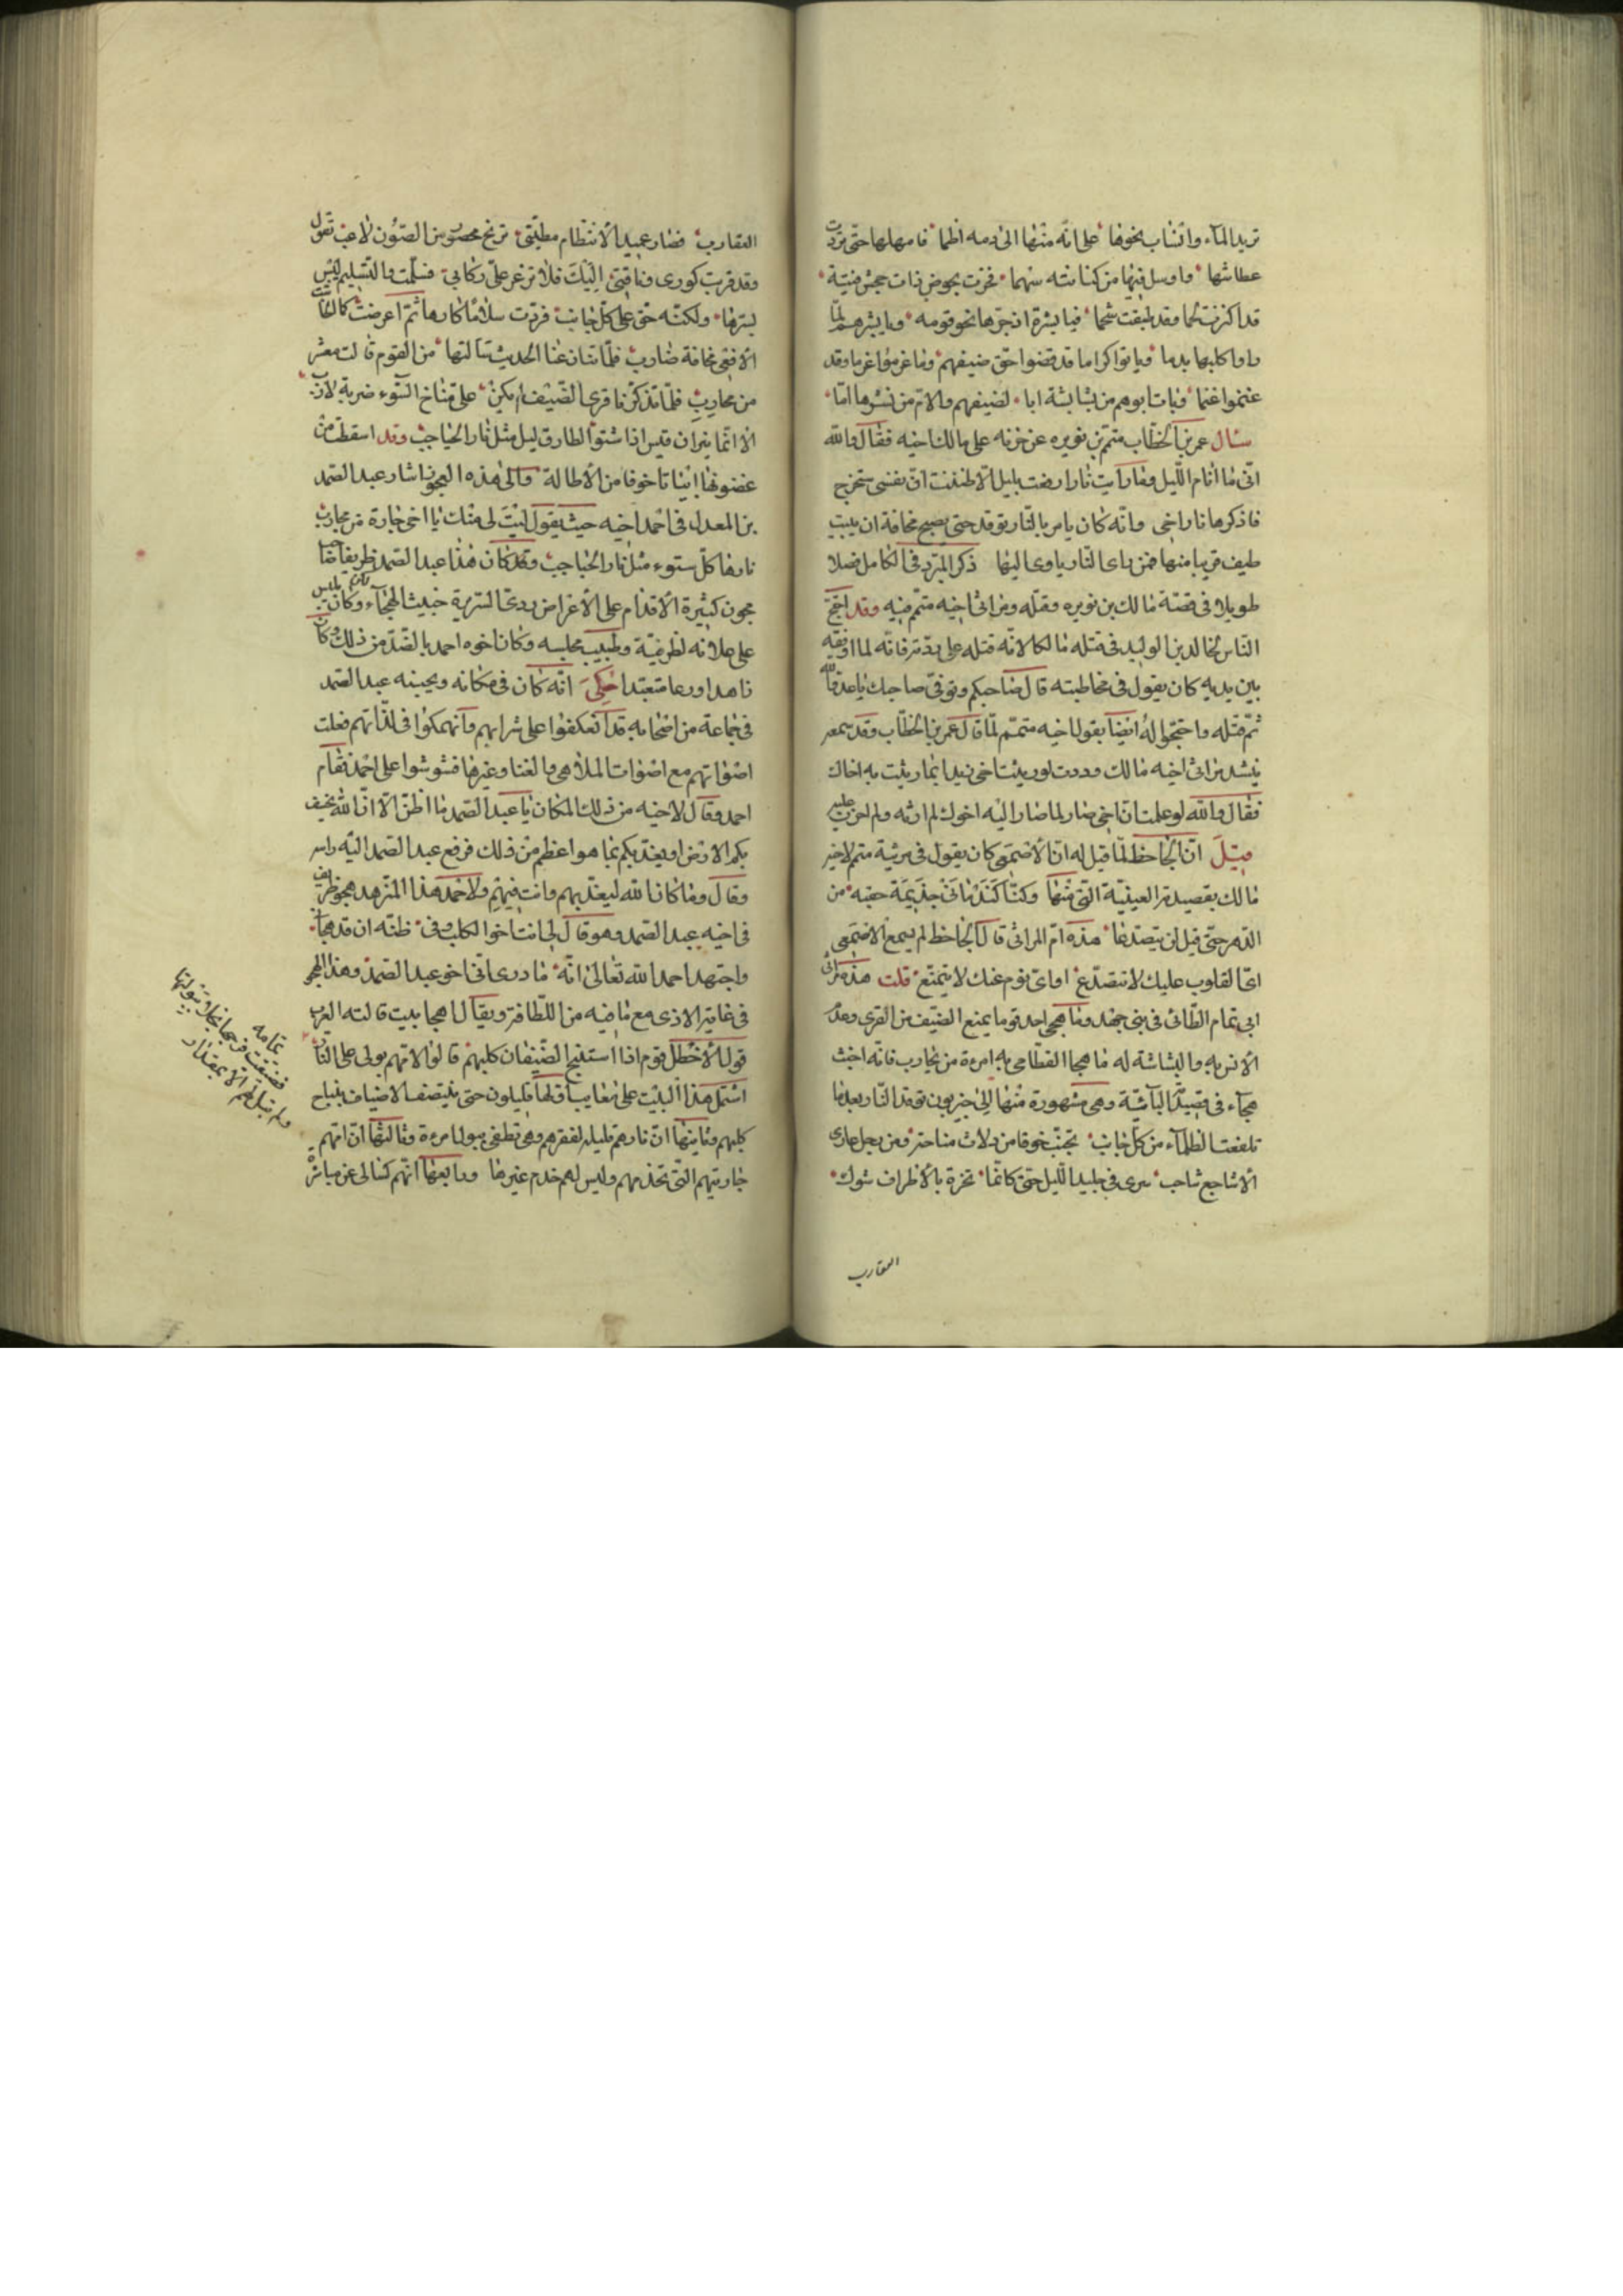 تريد المآء وانساب نحوها على انه منها الى دمه اظما فامهلها حتى تروت
عطاشها وارسل فيها من كنانته سهما فخرت نحوض ذات جحش فتية
قد اكتنزت لحما وقد طبقت شحما فيا بشره اذ جرها نحو قومه ويا بشرهم لما
راوا كلبها يدما وباتوا كراما قد قضوا حق ضيفهم وما غرموا غرما وقد
غنموا غنما وبات ابوهم من بشاشته ابا لضيفهم والام من بشرها اما
سئال عمر بن الخطاب متمم بن نويره عن حزنه على مالك اخيه فقال والله
انى ما انام الليل وما رايت نارا رفعت بليل الا ظننت ان نفسى ستخرج
فاذكر بها نار اخى وانه كان يامر بالنار توقد حتى يصبح مخافة ان يبيت
ضيف قريبا منها فمن راى النار ياوى اليها ذكر المبرد فى الكامل فصلا
طويلا فى قصة مالك بن نويره وقتله ومراثى اخيه متمم فيه وقد احتج
الناس لخالد بن الوليد فى قتله مالكا لانه قتله على ردته فانه لما اوقفه
بين يديه كان يقول فى مخاطبته قال صاحبكم وتوفى صاحبك يا عدو الله
ثم قتله واحتجوا له ايضا بقول اخيه متمم لما قال عمر بن الخطاب وقد سمعه
ينشد مراثى اخيه مالك وددت لو رثيت اخى زيدا بما رثيت به اخاك
فقال والله لو علمت ان اخى صار لما صار اليه اخوك لم ارثه ولم احزن عليه
قيل ان الجاحظ لما قيل له ان الاصمعى كان يقول فى مرثية متمم لاخيه
مالك بقصيدته العينية التى منها وكنا كندمانى جذيمة حقبة من
الدهر حتى قيل لن يتصدعا هذه ام المراثى قال الجاحظ لم يسمع الاصمعى
اى القلوب عليك لا تتصدع او اى نوم عنك لا يتمنع قلت هذه مراثى
ابى تمام الطائى فى بنى حميد وما هجى احد قوما بمنع الضيف من القرى وعدم
الانس به والبشاشة له ما هجا القطامى به امرءة من محارب فانه اخبث
هجآء فى قصيدته البائية وهى مشهورة منها الى حيزبون توقد النار بعد ما
تلفعت الظلمآء من كل جانب تجنب خوفا من دلاث مناخة ومن رجل عارى
الاشاجع شاحب سرى فى جليد الليل حتى كانما تخزم بالاطراف شوك
العقارب
العقارب فصار عبيد الانتظام مطيتى تريح محصور من الصون لاعب تقول
وقد قربت كورى وناقتى اليك فلا تذعر على ركابى فسلمت والتسليم ليس
يسرها ولكنه حق على كل جانب فردت سلاما كارها ثم اعرضت كما انحاشت
الافعى مخافة ضارب فلما تنازعنا الحديث سالتها من القوم قالت معشر
من محارب فلما تذكرنا قرى الضيف لم يكن على مناخ السوء ضربة لازب
الا انما نيران قيس اذا شتوا لطارق ليل مثل نار الحباحب وقد اسقطت من
غضونها ابياتا خوفا من الاطالة والى هذه العجوز اشار عبد الصمد
بن المعدل فى احمد اخيه حيث يقول ليت لى منك يا اخى جارة من محارب
نارها كل شتوة مثل نار الحباحب وقد كان هذا عبد الصمد ظريفا صاحب
مجون كبيرة الاقدام على الاعراض ردى السريرة خبيث الهجاء وكان يلبس
على علاته لظرفيته وطيب مجلسه وكان اخوه احمد بالضد من ذلك وكان
زاهدا ورعا متعبدا حكى انه كان فى مكانه وبجنبه عبد الصمد
فى جماعة من اصحابه قد اعتكفوا على شرابهم وانهمكوا فى لذاتهم فعلت
اصواتهم مع اصوات الملاهى والغنا وغيرها فشوشوا على احمد فقام
احمد وقال لاخيه من ذلك المكان يا عبد الصمد ما اظن الا ان الله يخسف
بكم الارض او يعذبكم بما هو اعظم من ذلك فرفع عبد الصمد اليه راسه
وقال وما كان الله ليعذبهم وانت فيهم ولاحمد هذا المتزهد هجو ظريف
فى اخيه عبد الصمد وهو قال لى انت اخو الكلب وفى ظنه ان قد هجا
واجتهد احمد الله تعالى انه ما درى انى اخو عبد الصمد وهذا الهجو
فى غاية الاذى مع ما فيه من اللطافة ويقال اهجا بيت قالته العرب
قول الاخطل قوم اذا استنبح الضيفان كلبهم قالوا لامهم بولى على النار
اشتمل هذا البيت على معايب اولها قليلون حتى يتيضف الاضياف بنباح
كلبهم وثانيها ان نارهم قليلة لفقرهم وهى تطفى ببول امرءة وثالثها ان امهم
جاريتهم التى تخدمهم وليس لهم خدم غيرها ورابعها انهم كسالى عن مباشرة
تمامه
فضيقت فرجها بخلا ببولتها
ولم تبل لهم الا بمقدار